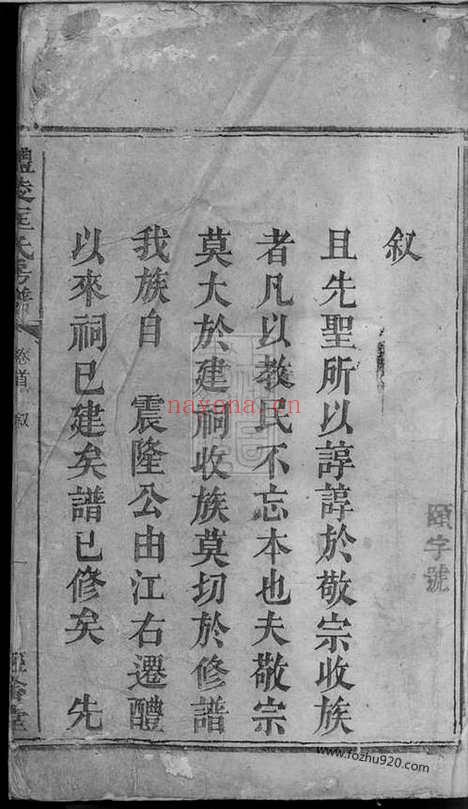 叙
且先聖所以諄諄於敬宗收族
者凡以教民不忘本也夫敬宗
莫大於建祠收族莫切於修譜
我族自 震隆公由江右遷醴
以來祠已建矣譜已修矣 先
卷首 叙
頤字號
nayona.cn
www.fozhu920.com